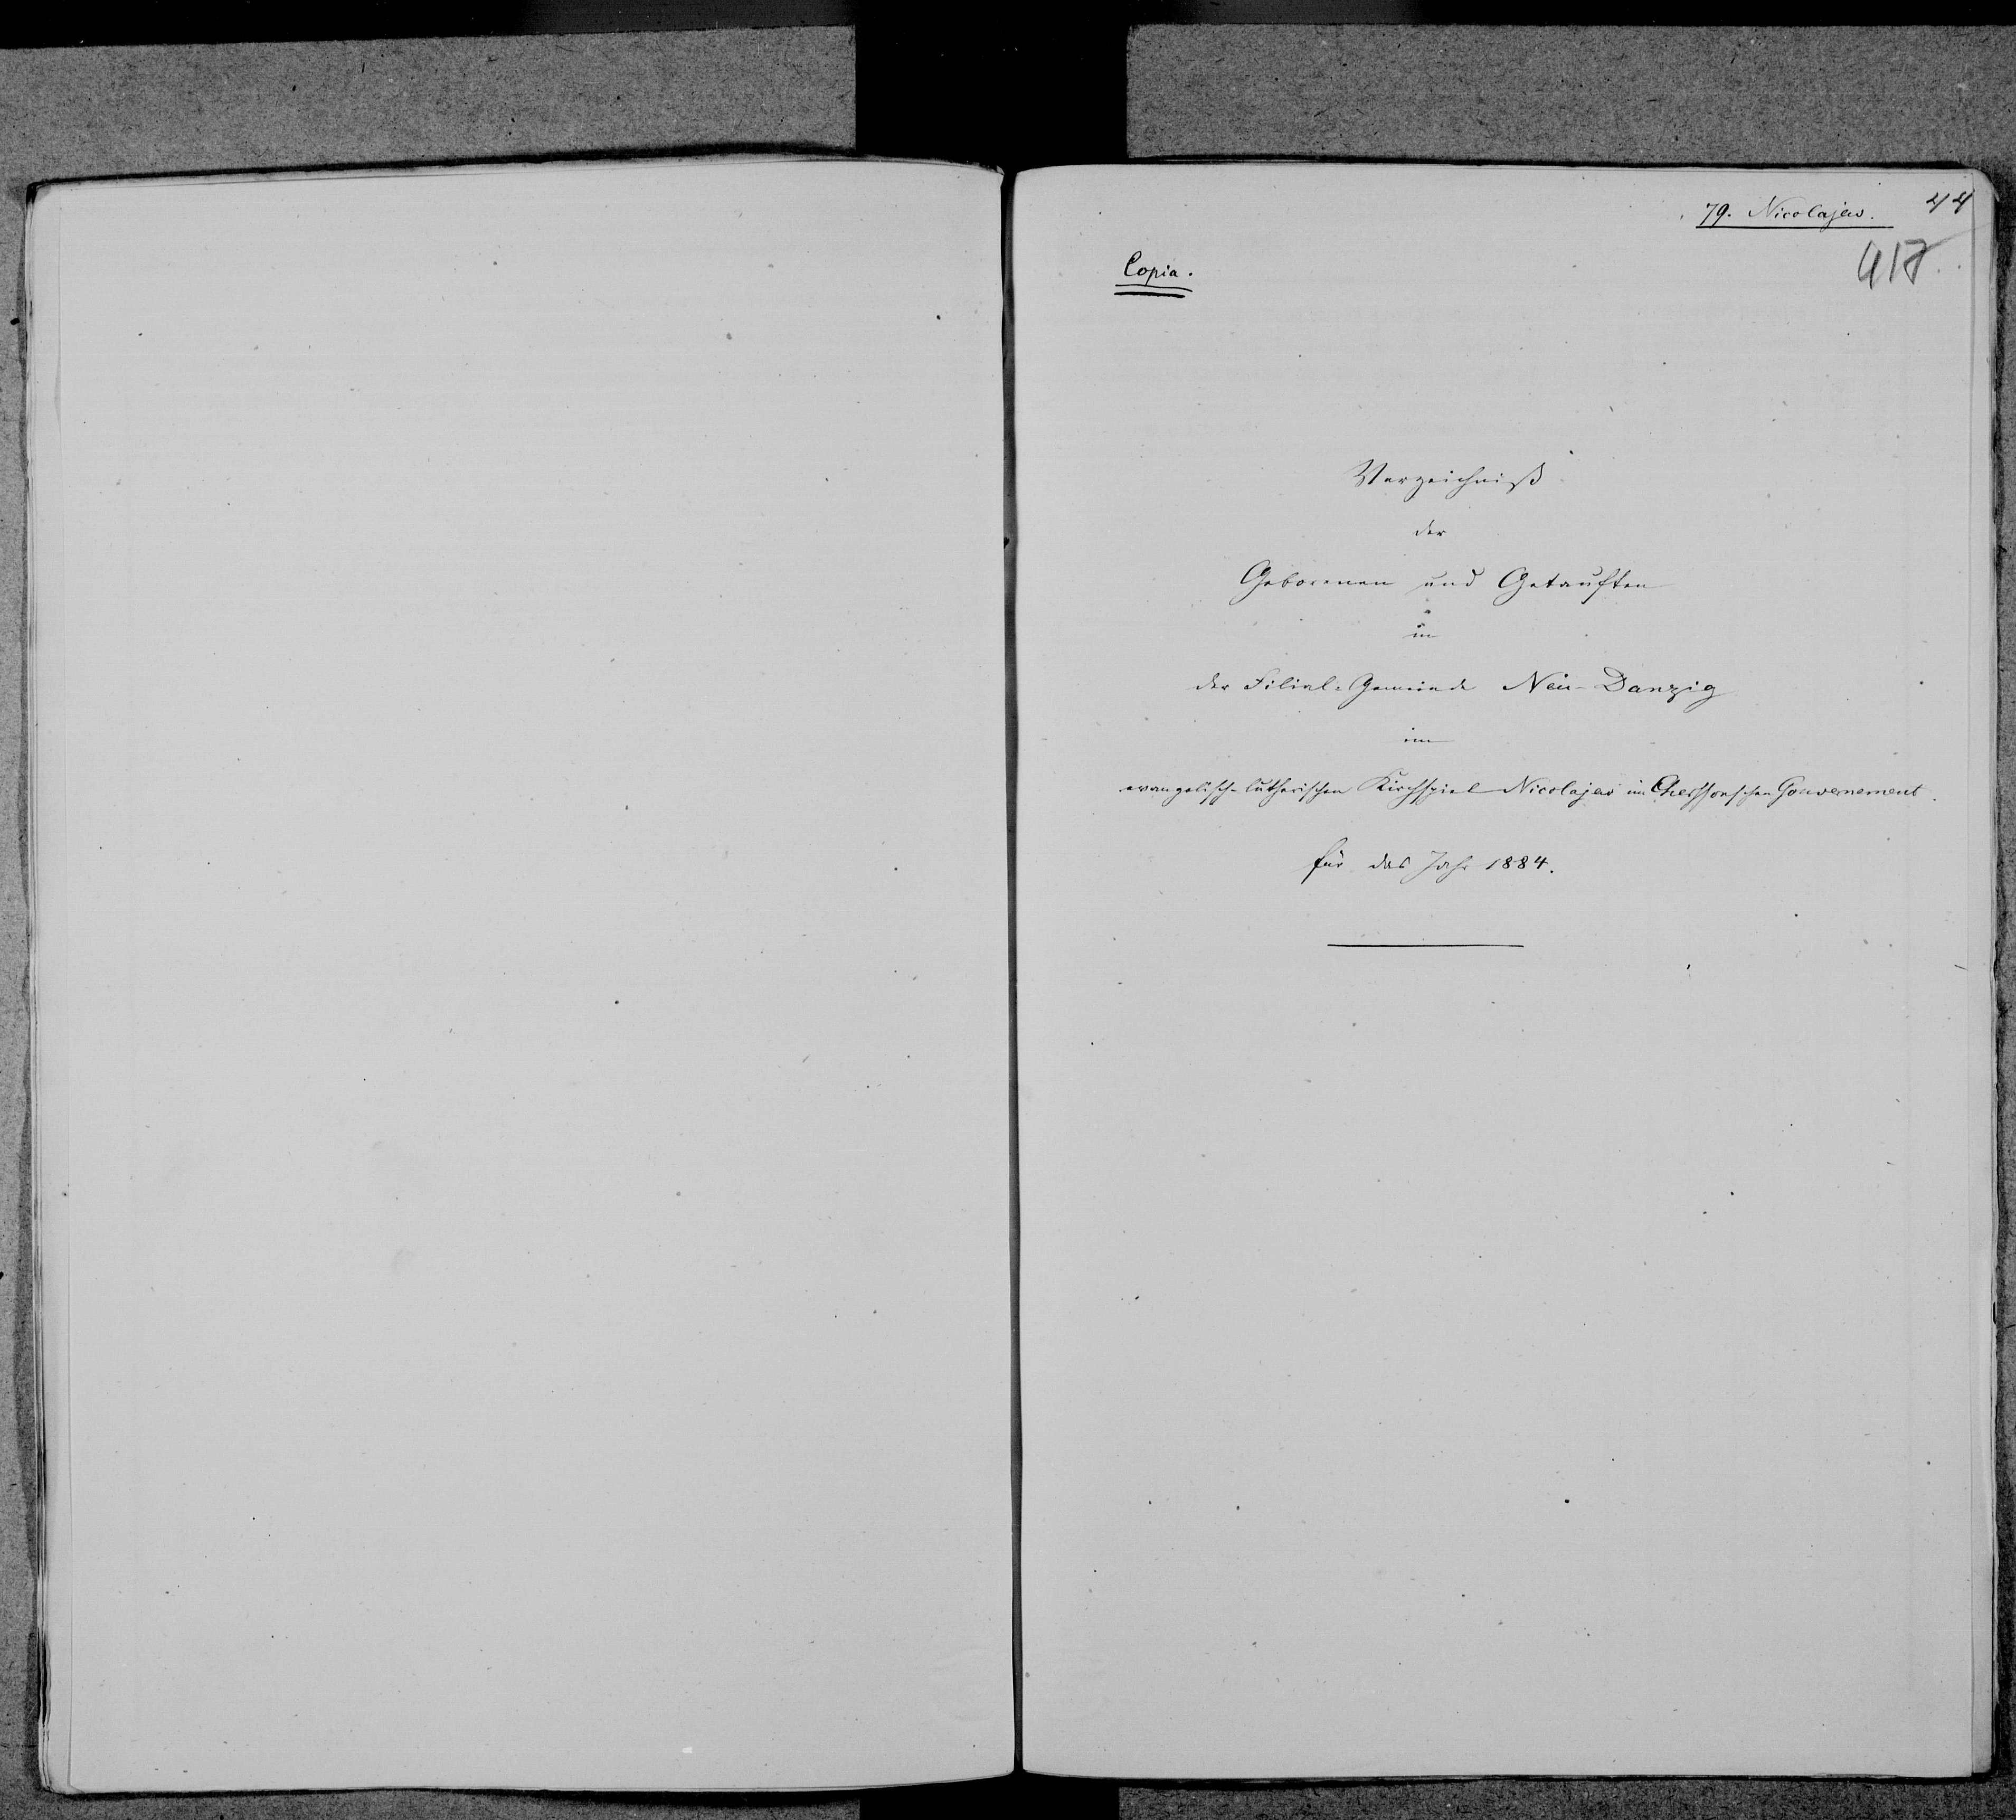 79. Nicolajew. 44
417
Copia.
Verzeichniß
der
Geborenen und Getauften
in
der Filial-Gemeinde Neu-Danzig
im
evangelisch-lutherischen Kirchspiel Nicolajew im Cherssonschen Gouvernement.
für das Jahr 1884.